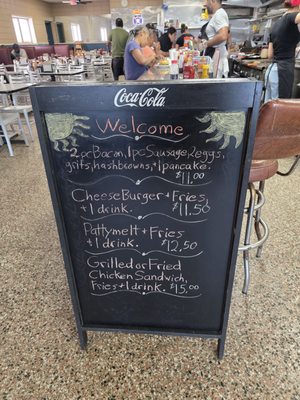 Coca-Cola
Welcome
2pc Bacon, 1pc Sausage, 2eggs,
grits, hashbrowns, +1 pancake.
$11.00
Cheese Burger + Fries
+1 drink. $11.50
Pattymelt + Fries
+1 drink. $12.50
Grilled or Fried
Chicken Sandwich,
Fries +1 drink. $15.00